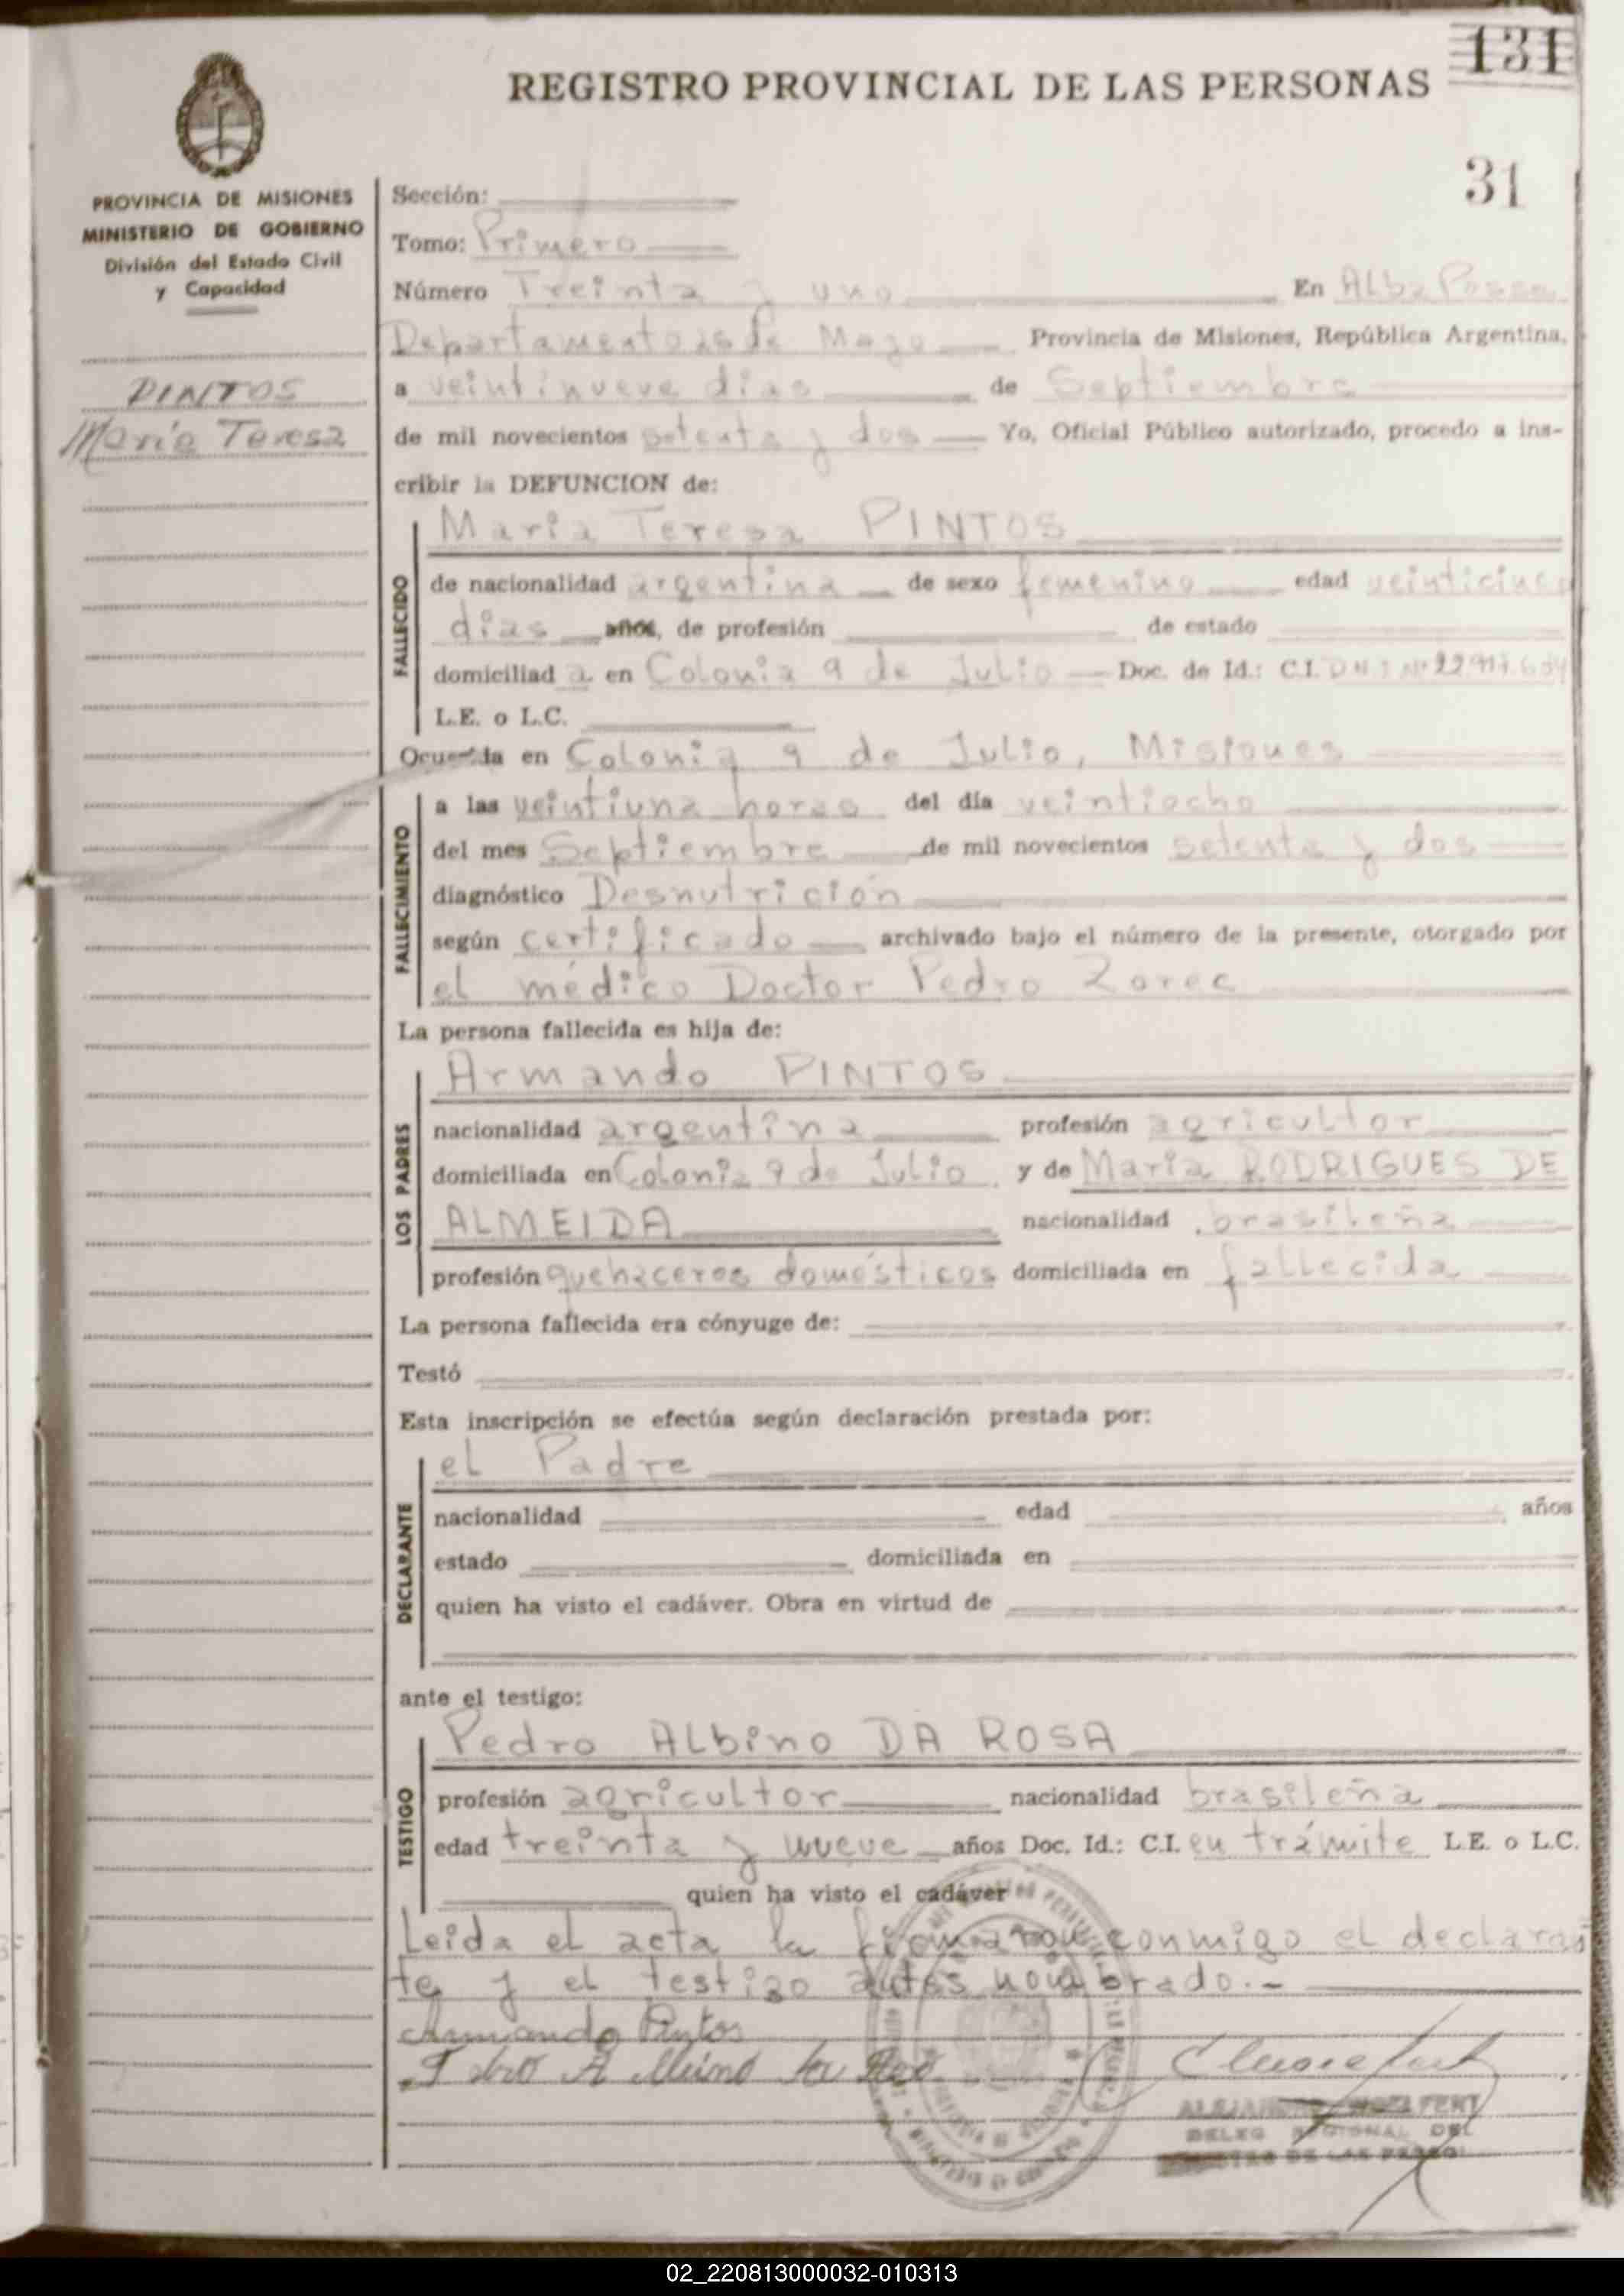 131
REGISTRO PROVINCIAL DE LAS PERSONAS
31
PROVINCIA DE MISIONES
MINISTERIO DE GOBIERNO
División del Estado Civil
y Capacidad
PINTOS
María Teresa
Sección:
Tomo: Primero
Número Treinta y uno En Alba Posse
Departamento 25 de Mayo Provincia de Misiones, República Argentina,
a veintinueve dias de Septiembre
de mil novecientos setenta y dos Yo, Oficial Público autorizado, procedo a ins-
cribir la DEFUNCION de:
María Teresa PINTOS
FALLECIDO
de nacionalidad argentina de sexo femenino edad veinticinco
dias años, de profesión de estado
domiciliad a en Colonia 9 de Julio Doc. de Id.: C.I. D N I Nº
L.E. o L.C.
Ocurrida en Colonia 9 de Julio, Misiones
FALLECIMIENTO
a las veintiuna horas del día veintiocho
del mes Septiembre de mil novecientos setenta y dos
diagnóstico Desnutrición
según certificado archivado bajo el número de la presente, otorgado por
el médico Doctor Pedro Zorec
La persona fallecida es hija de:
LOS PADRES
Armando PINTOS
nacionalidad argentina profesión agricultor
domiciliada en Colonia 9 de Julio y de María RODRIGUES DE
ALMEIDA nacionalidad brasileña
profesión quehaceres domésticos domiciliada en fallecida
La persona fallecida era cónyuge de:
Testó
Esta inscripción se efectúa según declaración prestada por:
DECLARANTE
el Padre
nacionalidad edad años
estado domiciliada en
quien ha visto el cadáver. Obra en virtud de
ante el testigo:
TESTIGO
Pedro Albino DA ROSA
profesión agricultor nacionalidad brasileña
edad treinta y nueve años Doc. Id.: C.I. en trámite L.E. o L.C.
quien ha visto el cadáver
Leida el acta la firmaron conmigo el declaran
te y el testigo antes nombrado.-
Armando Pintos
DE LAS
02_220813000032-010313